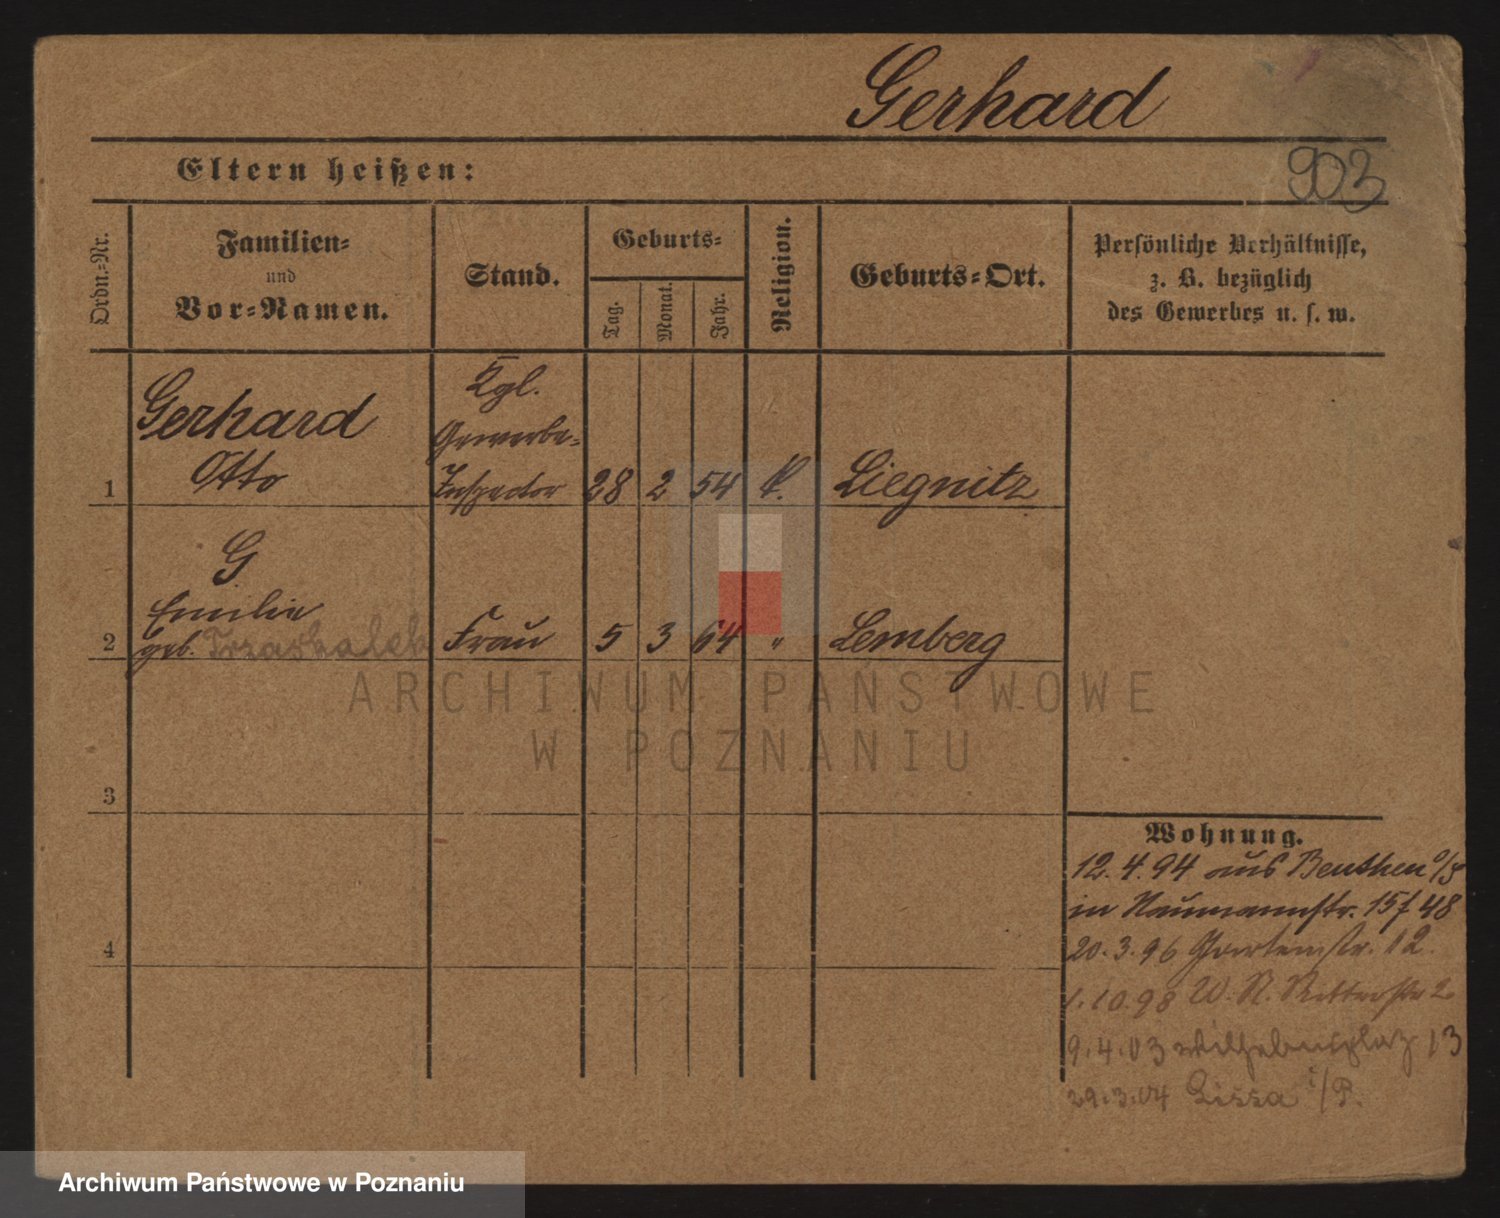 Gerhard
903
Eltern heißen:
Ordn.=Nr.
Familien=
und
Vor=Namen.
Stand.
Geburts=
Tag.
Monat.
Jahr.
Religion.
Geburts=Ort.
Persönliche Verhältnisse,
z. B. bezüglich
des Gewerbes u. s. w.
1 Gerhard Otto Kgl. Gewerbe= Inspector 28 2 54 k. Liegnitz
2 G Emilie geb. Trzaskalek Frau 5 3 64 " Lemberg
3
4
Wohnung.
12.4.94 aus Beuthen O/S
in Naumannstr. 15 f 48
20.3.96 Gartenstr. 12.
1.10.98 W. N. Ritterstr 2
9.4.03 Wilhelmsplatz 13
29.3.04 Lissa i/P.
ARCHIWUM PAŃSTWOWE
W POZNANIU
Archiwum Państwowe w Poznaniu